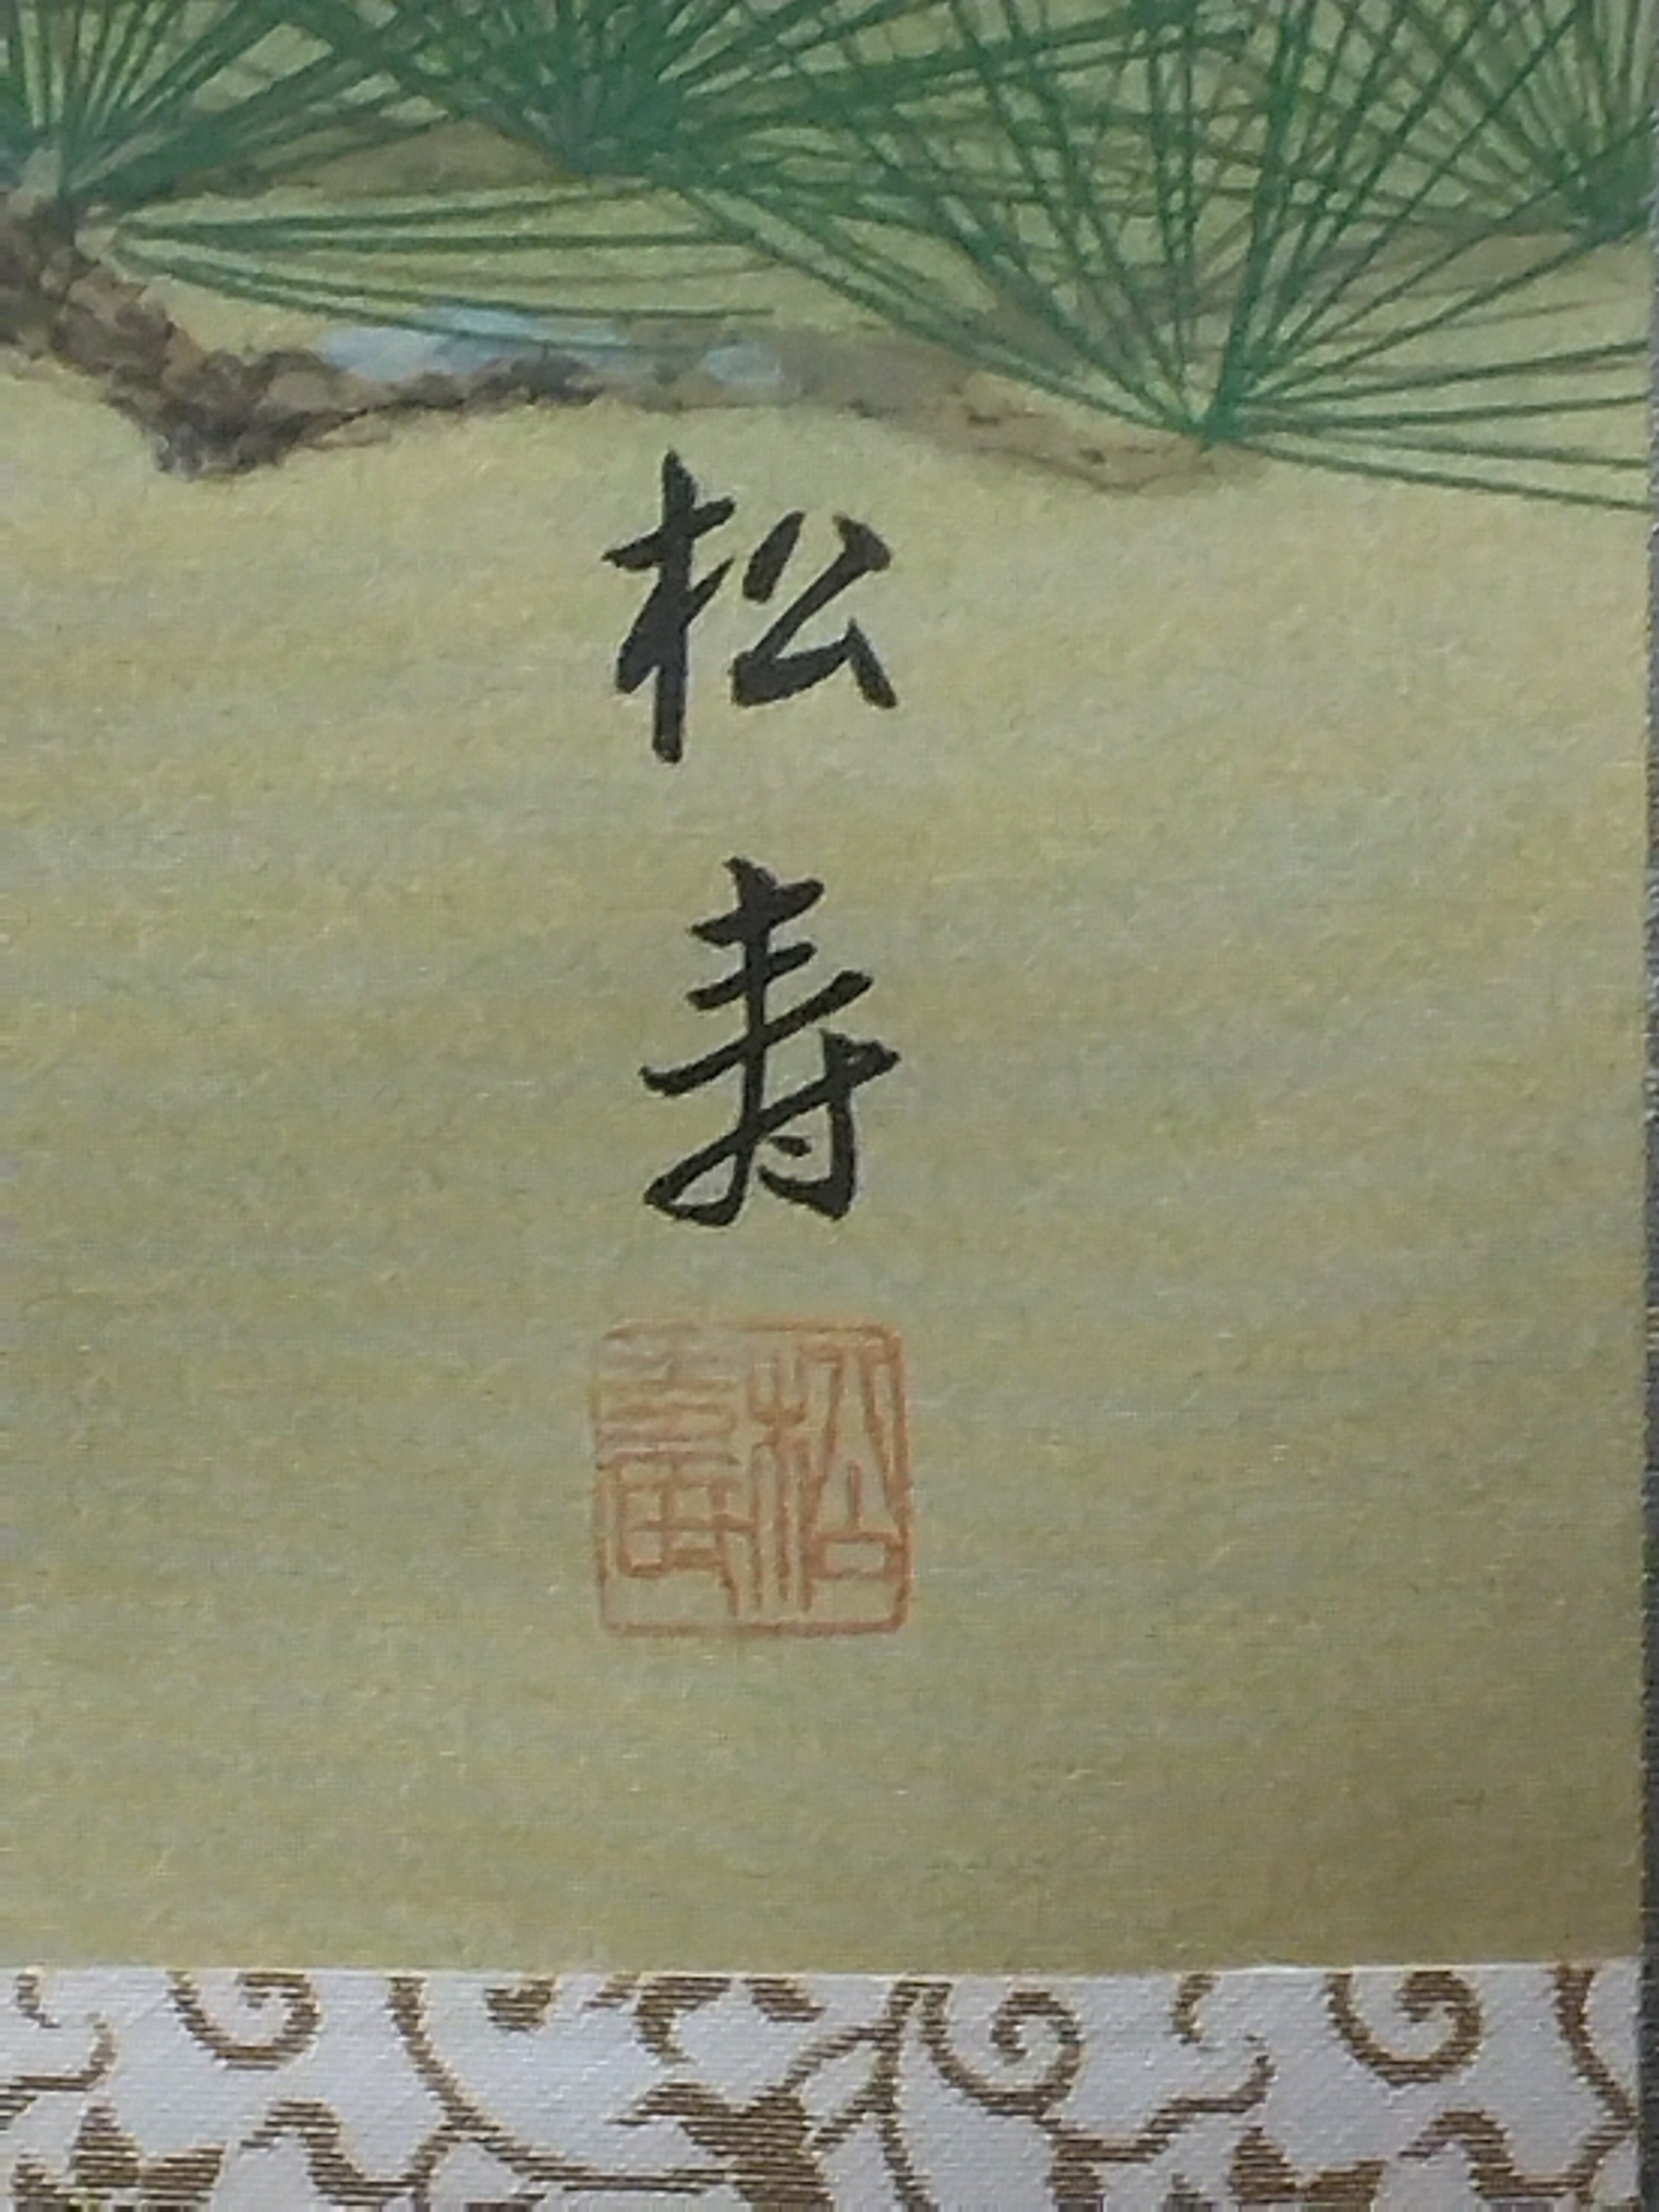 松寿
松壽